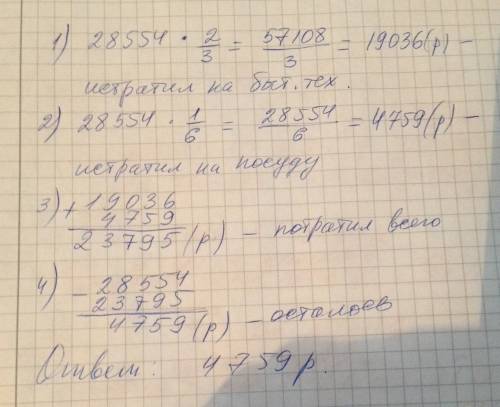 1) 28554 · 2/3 = 57108/3 = 19036(р) –
истратил на быт. тех.
2) 28554 · 1/6 = 28554/6 = 4759(р) –
истратил на посуду
3) + 19036
4759
23795 (р) – потратил всего
4) – 28554
23795
4759 (р) – осталось
Ответ: 4759 р.